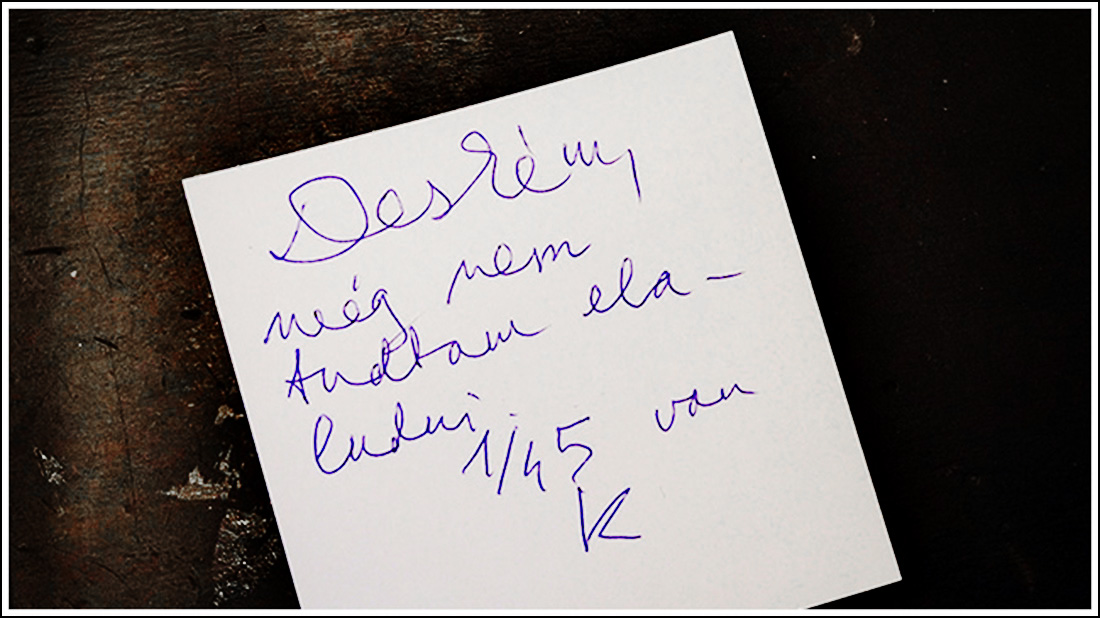 Deském,
még nem
tudtam ela-
ludni. 1/45 van
K